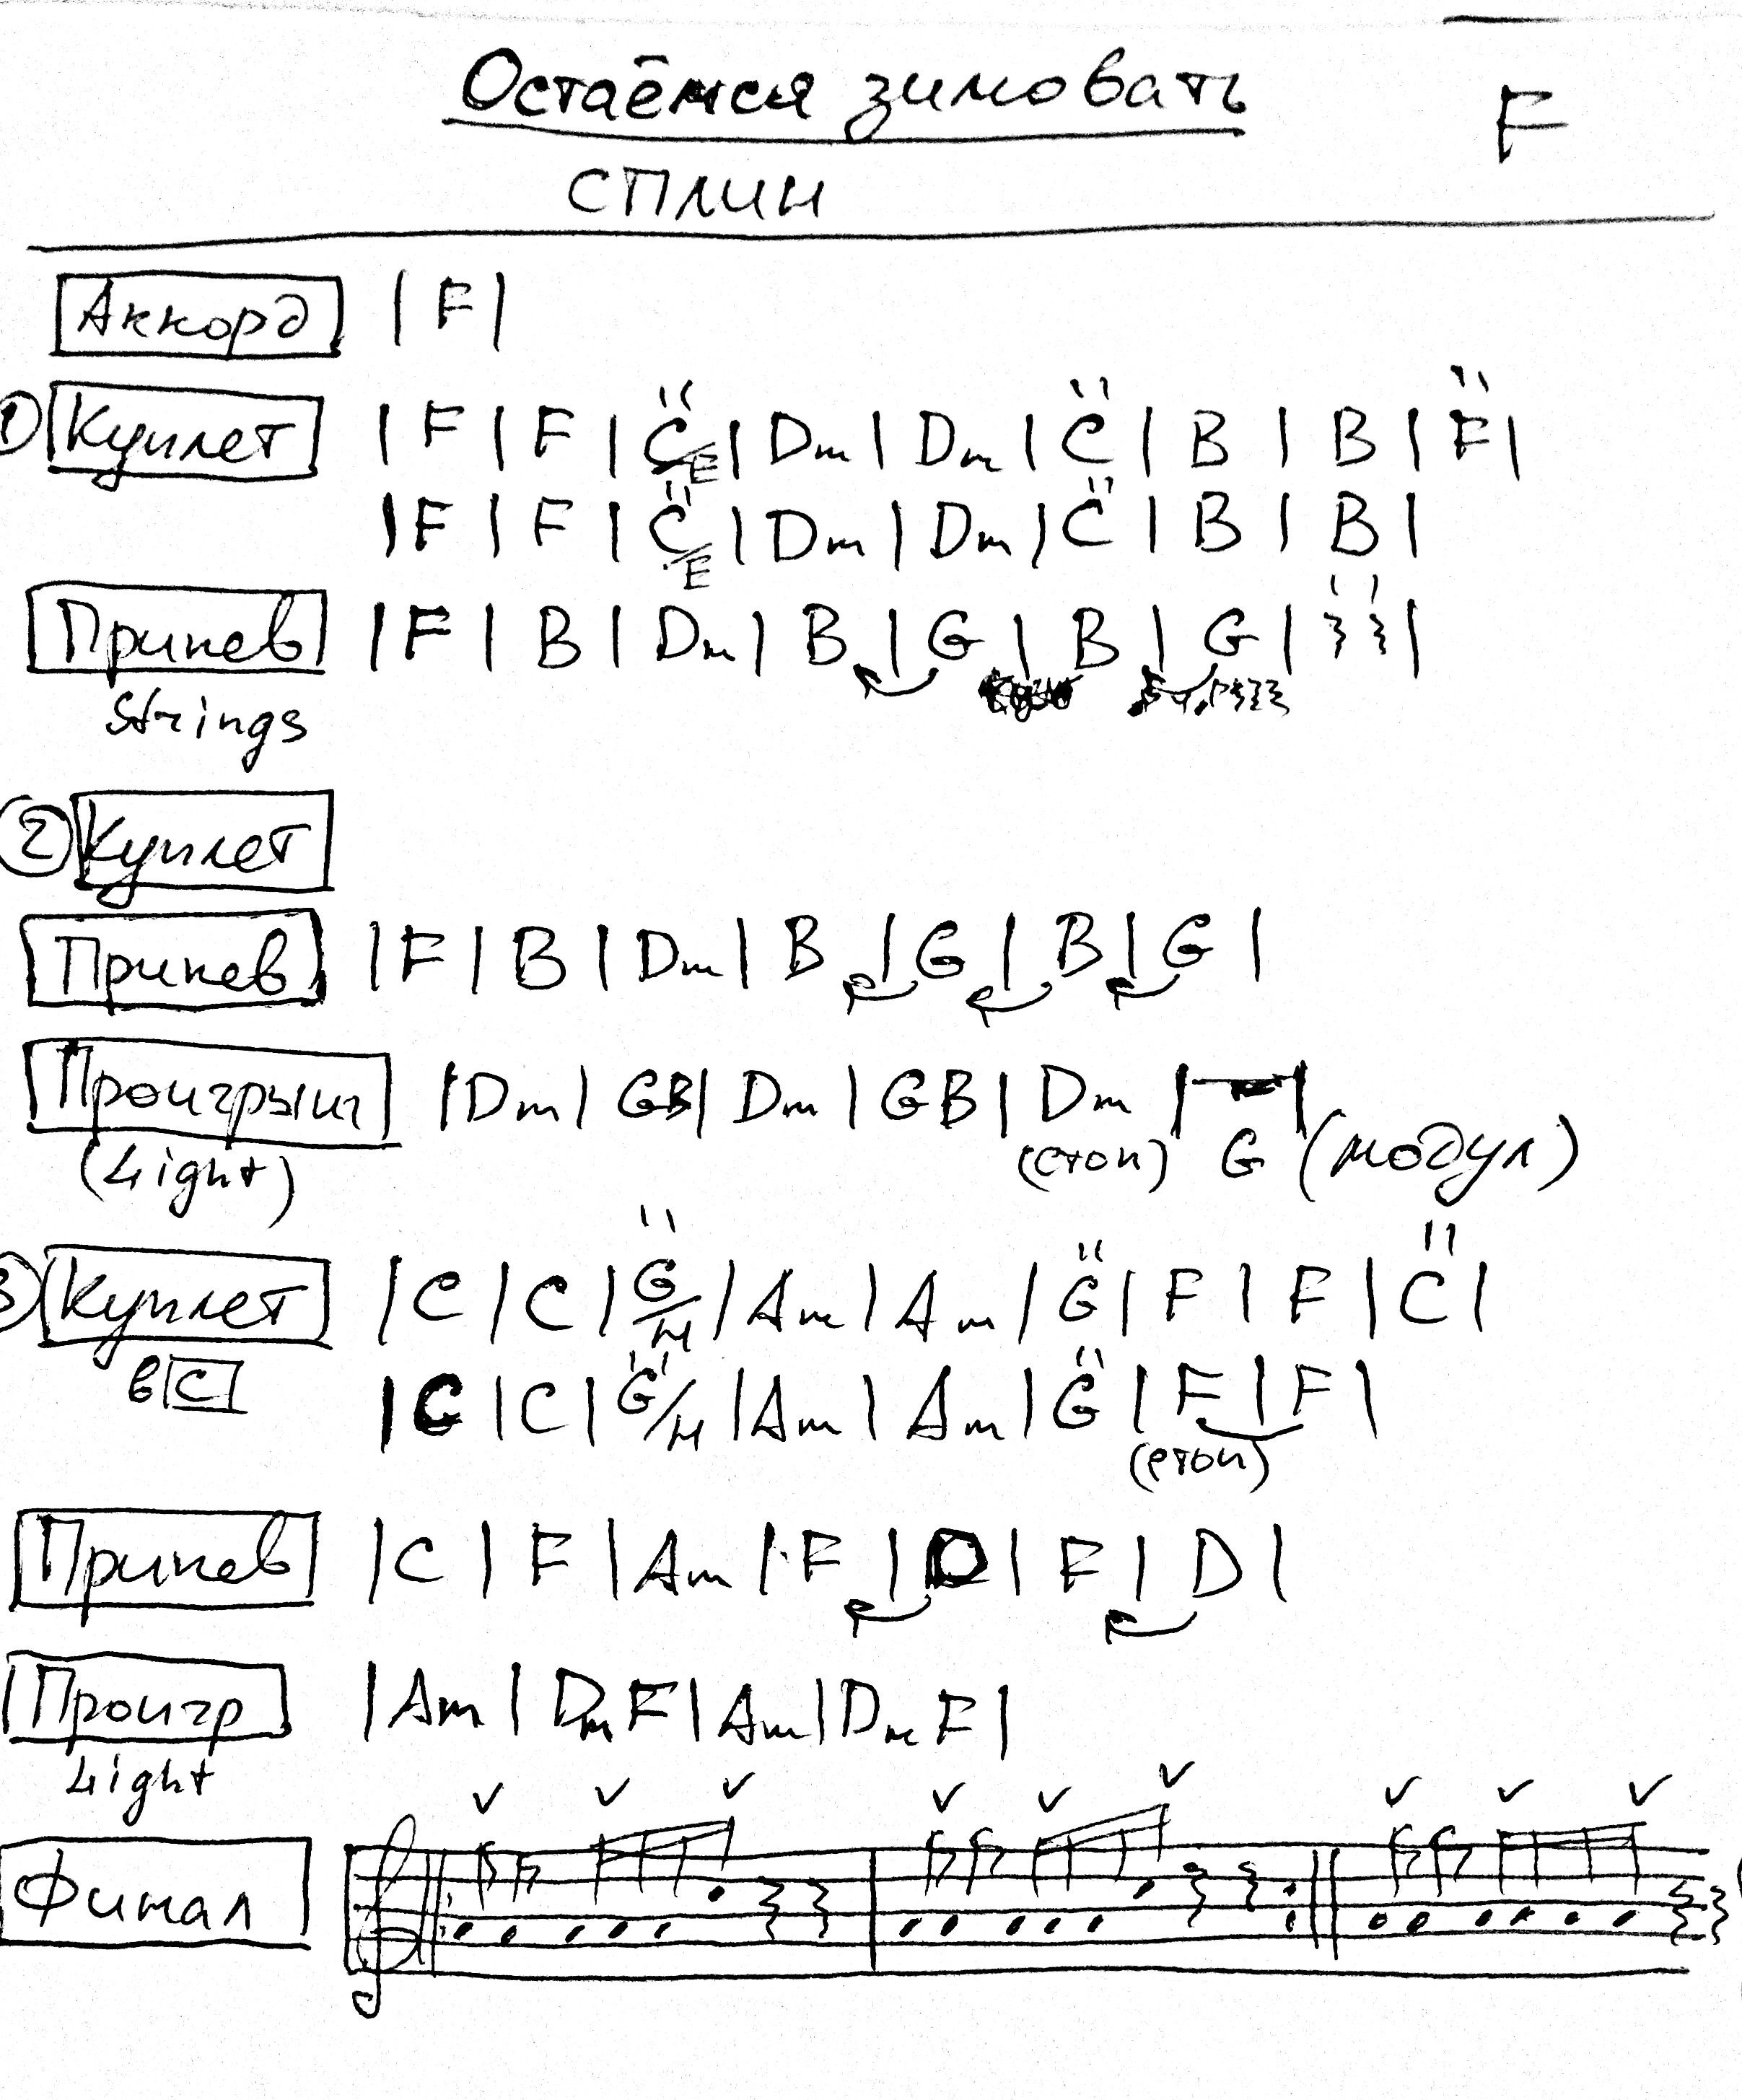 Остаёмся зимовать F
сплин
Аккорд | F |
① Куплет | F | F | C/E | Dm | Dm | C | B | B | F |
| F | F | C/E | Dm | Dm | C | B | B |
Припев | F | B | Dm | B | G | B | G | |
Strings
② Куплет
Припев | F | B | Dm | B | G | B | G |
Проигрыш | Dm | GB | Dm | GB | Dm | |
(Light) (стоп) G (модул)
3 Куплет | C | C | G/H | Am | Am | G | F | F | C |
в C | C | C | G/H | Am | Am | G | F | F |
(стоп)
Припев | C | F | Am | F | D | F | D |
Проигр | Am | Dm F | Am | Dm F |
Light
Финал